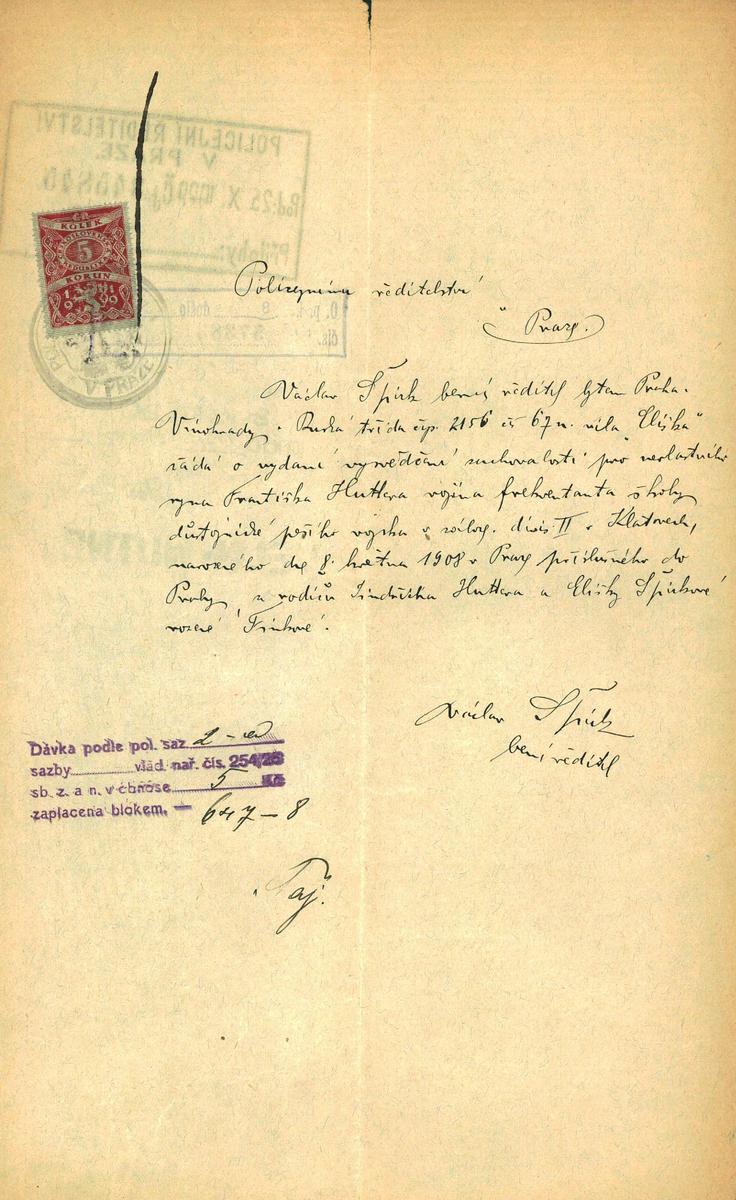 POLICEJNÍ ŘEDITELSTVÍ
V PRAZE.
Pod. 25. X. 1929 Čj.
Přílohy:
KOLEK
5
KORUN
V PRAZE
ředitelství
v Praze.
Václav Špírk berní ředitel Praha-
Vinohrady, Ruská třída čp. 2156 čís 67 n. vila "Eliška"
žádá o vydání vysvědčení zachovalosti pro nevlastního
syna Františka Huttera vojína frekventanta školy
důstojnické pěšího vojska v zálog. divis II v Klatovech,
narozeného dne 8. května 1908 v Praze příslušného do
Prahy, z rodičů Jindřicha Huttera a Elišky Špírkové
rozené
Václav Špírk
berní ředitel
Dávka podle pol. saz. 2
sazby vlád. nař. čís. 254/26
sb. z. a n. v obnose 5 Kč
zaplacena blokem. — 647 – 8